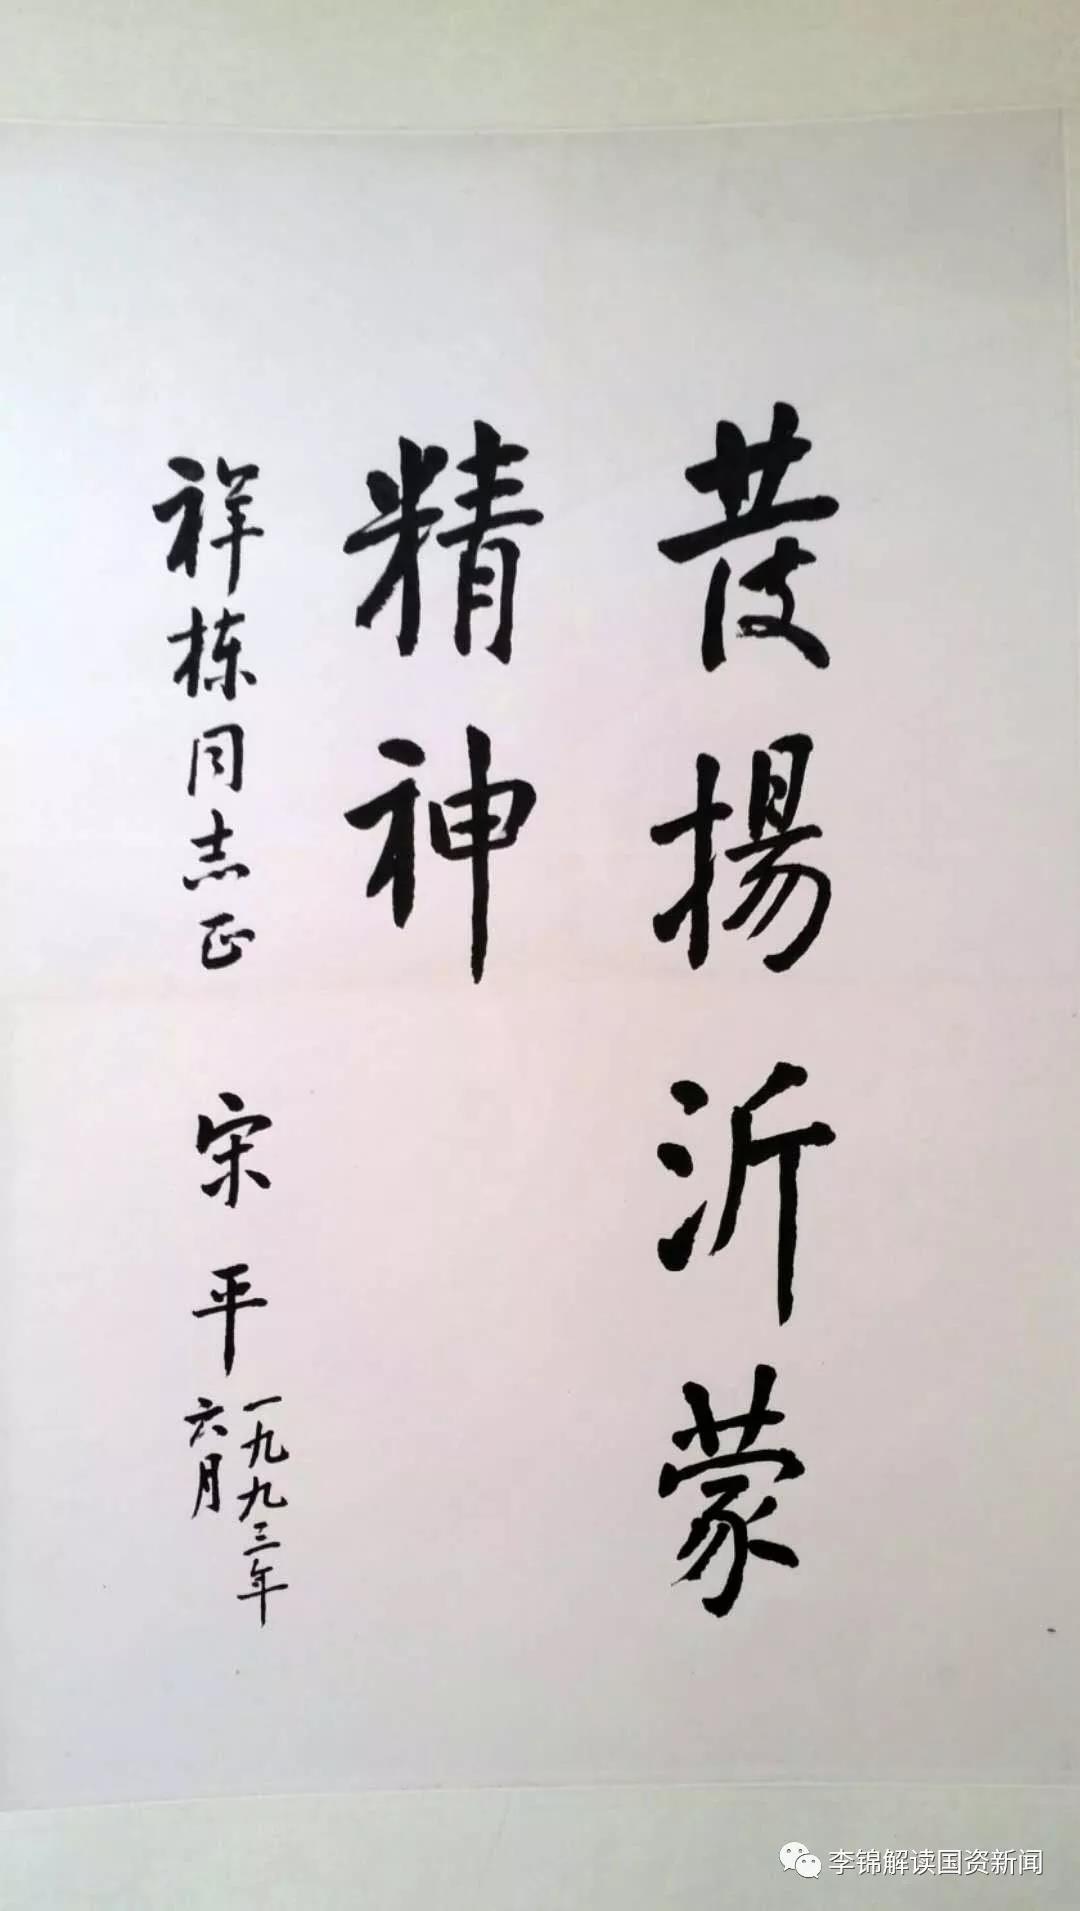 發揚沂蒙
精神
祥栋同志正
宋平
一九九三年
六月
李锦解读国资新闻